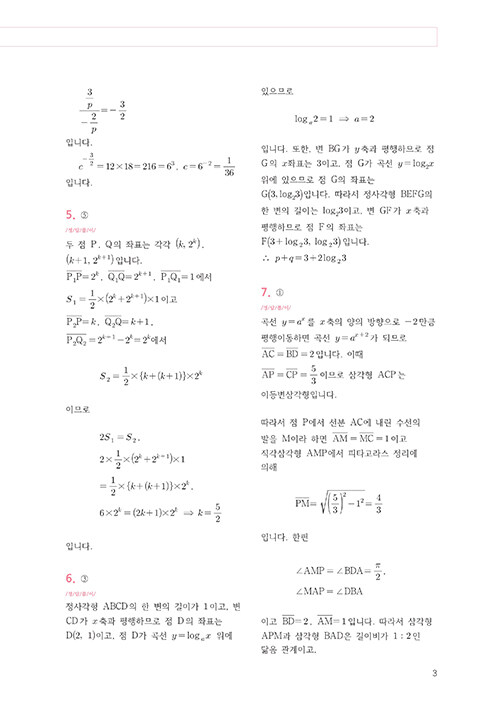 3/p / -2/p = -3/2
입니다.
c^(-3/2) = 12×18 = 216 = 6³, c = 6⁻² = 1/36
입니다.
5. ⑤
/정/답/풀/이/
두 점 P, Q의 좌표는 각각 (k, 2^k),
(k+1, 2^(k+1))입니다.
P₁P=2^k, Q₁Q=2^(k+1), P₁Q₁=1에서
S₁ = 1/2×(2^k+2^(k+1))×1이고
P₂P=k, Q₂Q=k+1,
P₂Q₂=2^(k+1)-2^k=2^k에서
S₂ = 1/2×{k+(k+1)}×2^k
이므로
2S₁=S₂,
2×1/2×(2^k+2^(k+1))×1
=1/2×{k+(k+1)}×2^k,
6×2^k=(2k+1)×2^k ⇒ k=5/2
입니다.
6. ③
/정/답/풀/이/
정사각형 ABCD의 한 변의 길이가 1이고, 변
CD가 x축과 평행하므로 점 D의 좌표는
D(2, 1)이고, 점 D가 곡선 y=logₐx 위에
있으므로
logₐ2=1 ⇒ a=2
입니다. 또한, 변 BG가 y축과 평행하므로 점
G의 x좌표는 3이고, 점 G가 곡선 y=log₂x
위에 있으므로 점 G의 좌표는
G(3, log₂3)입니다. 따라서 정사각형 BEFG의
한 변의 길이는 log₂3이고, 변 GF가 x축과
평행하므로 점 F의 좌표는
F(3+log₂3, log₂3)입니다.
∴ p+q=3+2log₂3
7. ①
/정/답/풀/이/
곡선 y=a^x를 x축의 양의 방향으로 -2만큼
평행이동하면 곡선 y=a^(x+2)가 되므로
AC=BD=2입니다. 이때
AP=CP=5/3이므로 삼각형 ACP는
이등변삼각형입니다.
따라서 점 P에서 선분 AC에 내린 수선의
발을 M이라 하면 AM=MC=1이고
직각삼각형 AMP에서 피타고라스 정리에
의해
PM=√((5/3)²-1²)=4/3
입니다. 한편
∠AMP=∠BDA=π/2,
∠MAP=∠DBA
이고 BD=2, AM=1입니다. 따라서 삼각형
APM과 삼각형 BAD은 길이비가 1:2인
닮음 관계이고,
3